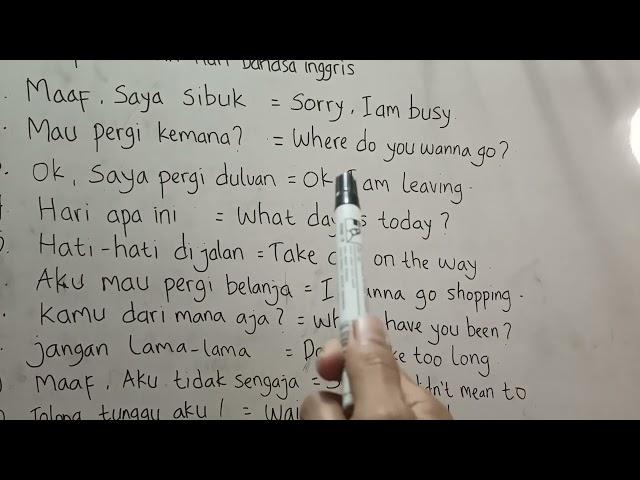 bahasa inggris
Maaf, Saya sibuk = Sorry, I am busy
Mau pergi kemana? = Where do you wanna go?
Ok, Saya pergi duluan = Ok, I am leaving.
Hari apa ini = What day is today?
Hati-hati dijalan = Take on the way
Aku mau pergi belanja = I wanna go shopping.
Kamu dari mana aja? = have you been?
jangan Lama-lama = too long
Maaf, Aku tidak sengaja = mean to
Tolong tunggu aku! =